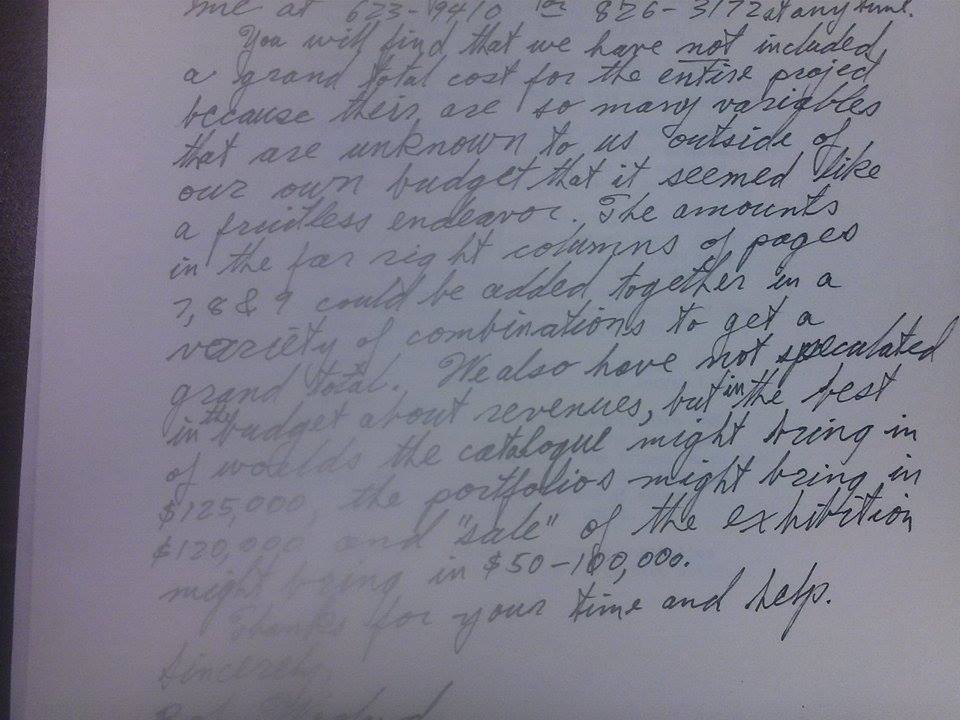 me at 623-9410 or 826-3172 at any time.
You will find that we have not included
a grand total cost for the entire project
because their are so many variables
that are unknown to us outside of
our own budget that it seemed like
a fruitless endeavor. The amounts
in the far right columns of pages
7, 8 & 9 could be added together in a
variety of combinations to get a
grand total. We also have not speculated
in the budget about revenues, but in the best
of worlds the catalogue might bring in
$125,000, the portfolios might bring in
$120,000 and "sale" of the exhibition
might bring in $50-100,000.
Thanks for your time and help.
Sincerely,